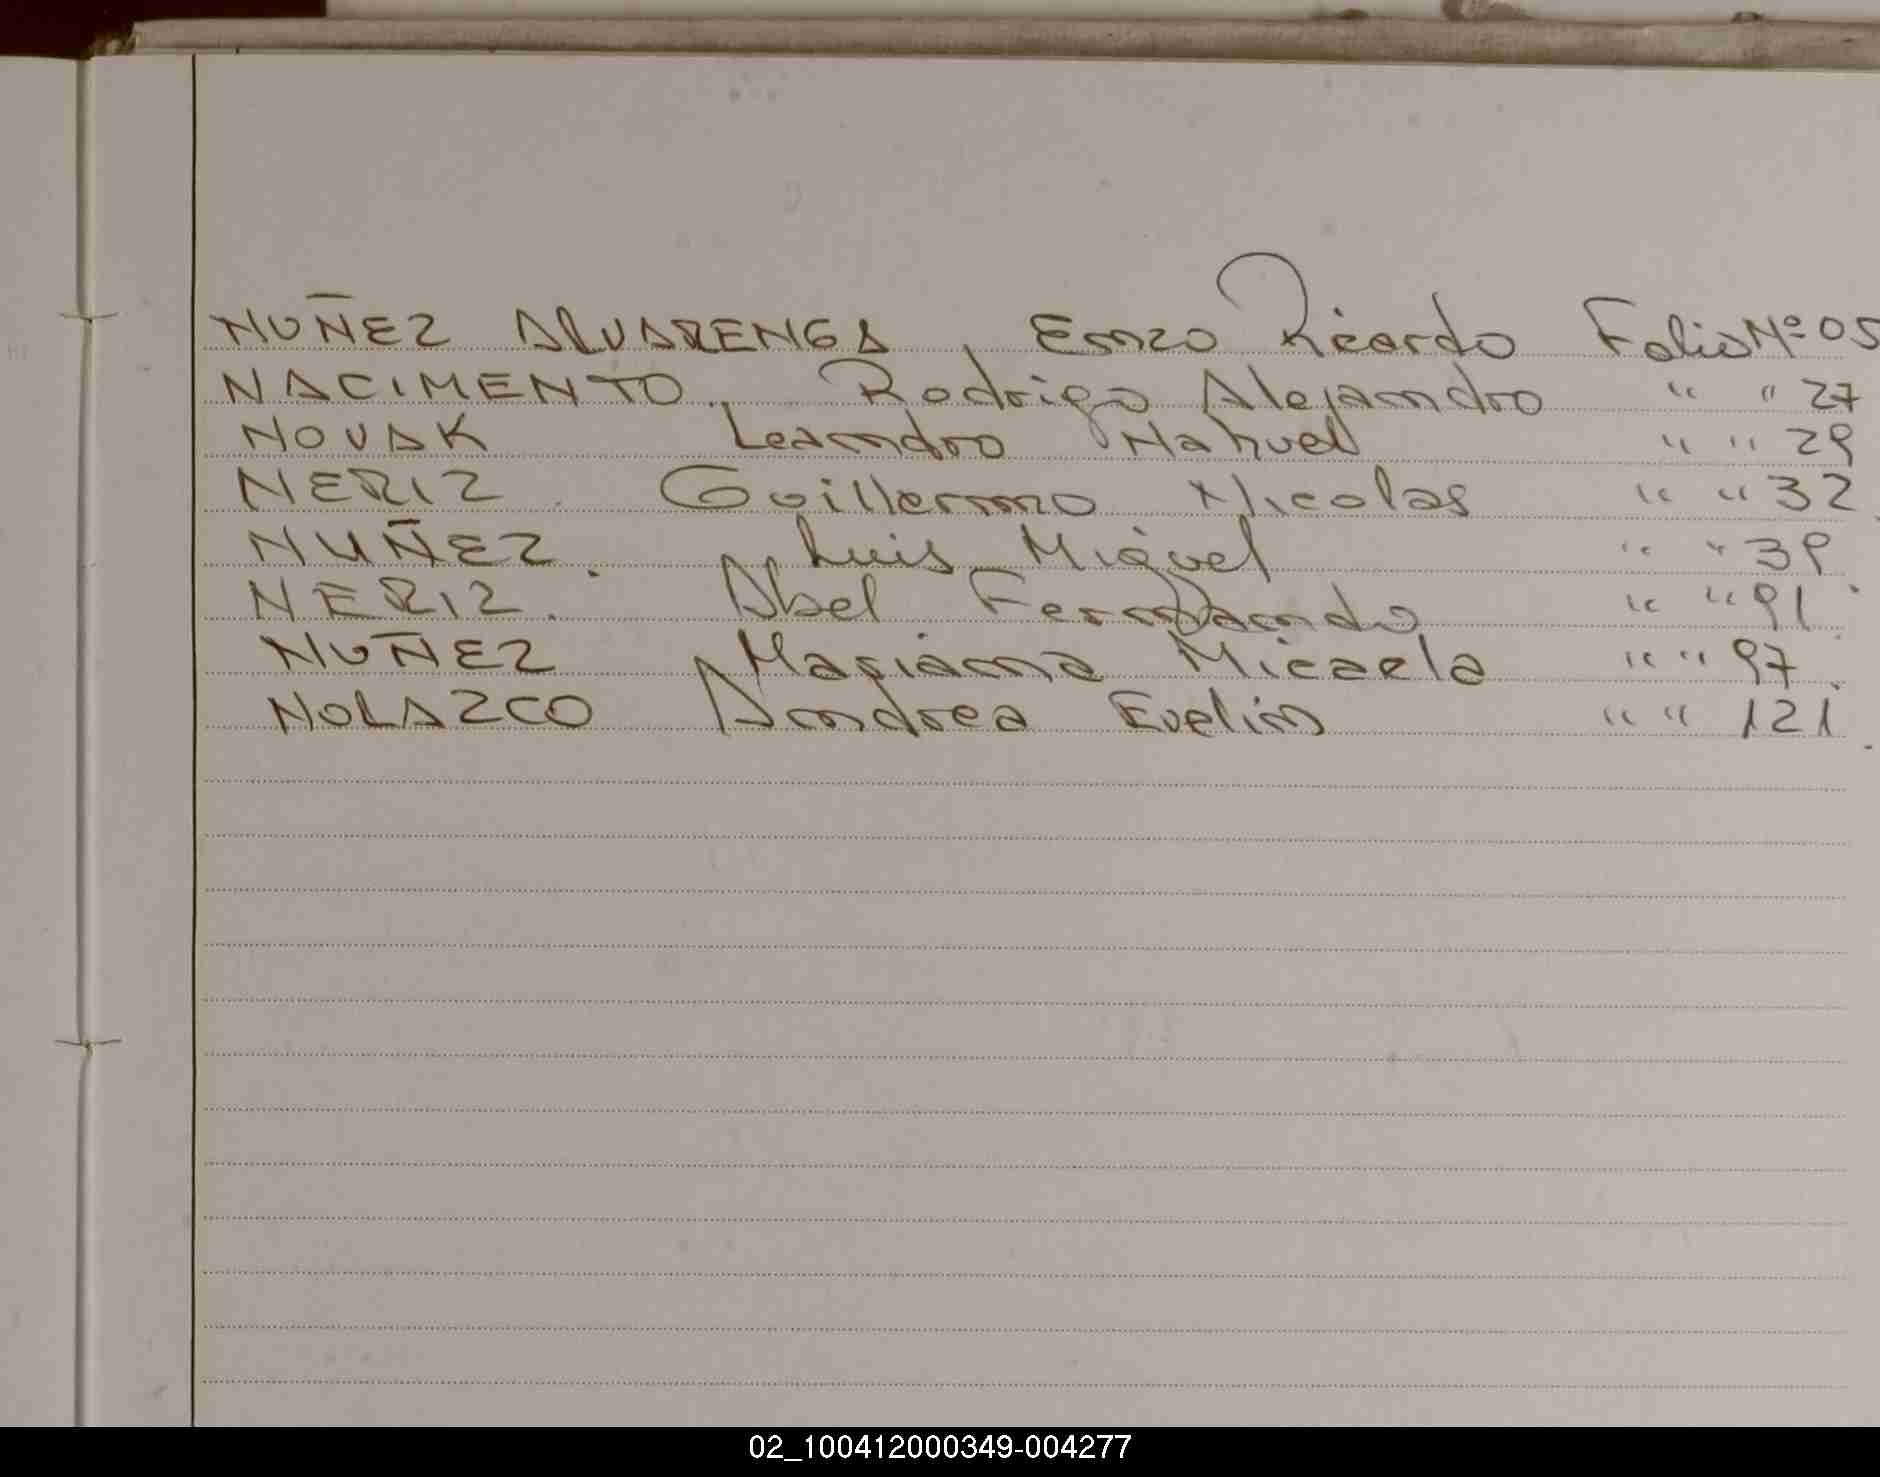 NUÑEZ ALVARENGA, Enzo Ricardo Folio Nº 05
NACIMENTO, Rodrigo Alejandro " " 27
NOVAK Leandro Nahuel " " 29
NERIZ. Guillermo Nicolas " " 32.
NUÑEZ. Luis Miguel " " 39.
NERIZ. Abel Fernando " " 91.
NUÑEZ Mariana Micaela " " 97.
NOLAZCO Andrea Evelin " " 121.
02_100412000349-004277